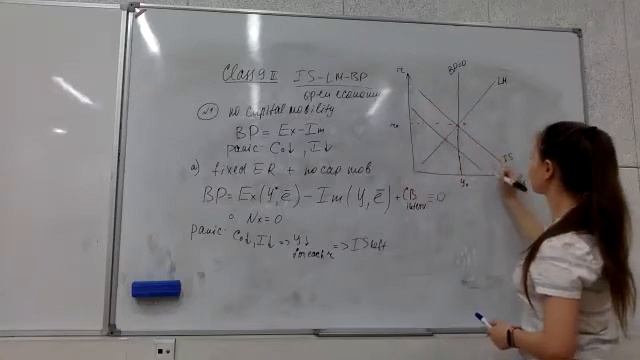 Class 9 II IS-LM-BP
open economy
№1 no capital mobility
BP = Ex - Im
panic: C₀↓, I↓
a) fixed ER + no cap mob
BP = Ex(Y*, ē) - Im(Y, ē) + CB ≡ 0
0. Nx = 0
panic: C₀↓, I↓ => Y↓ => IS left
for each r
BP=0
LM
IS
Y₀